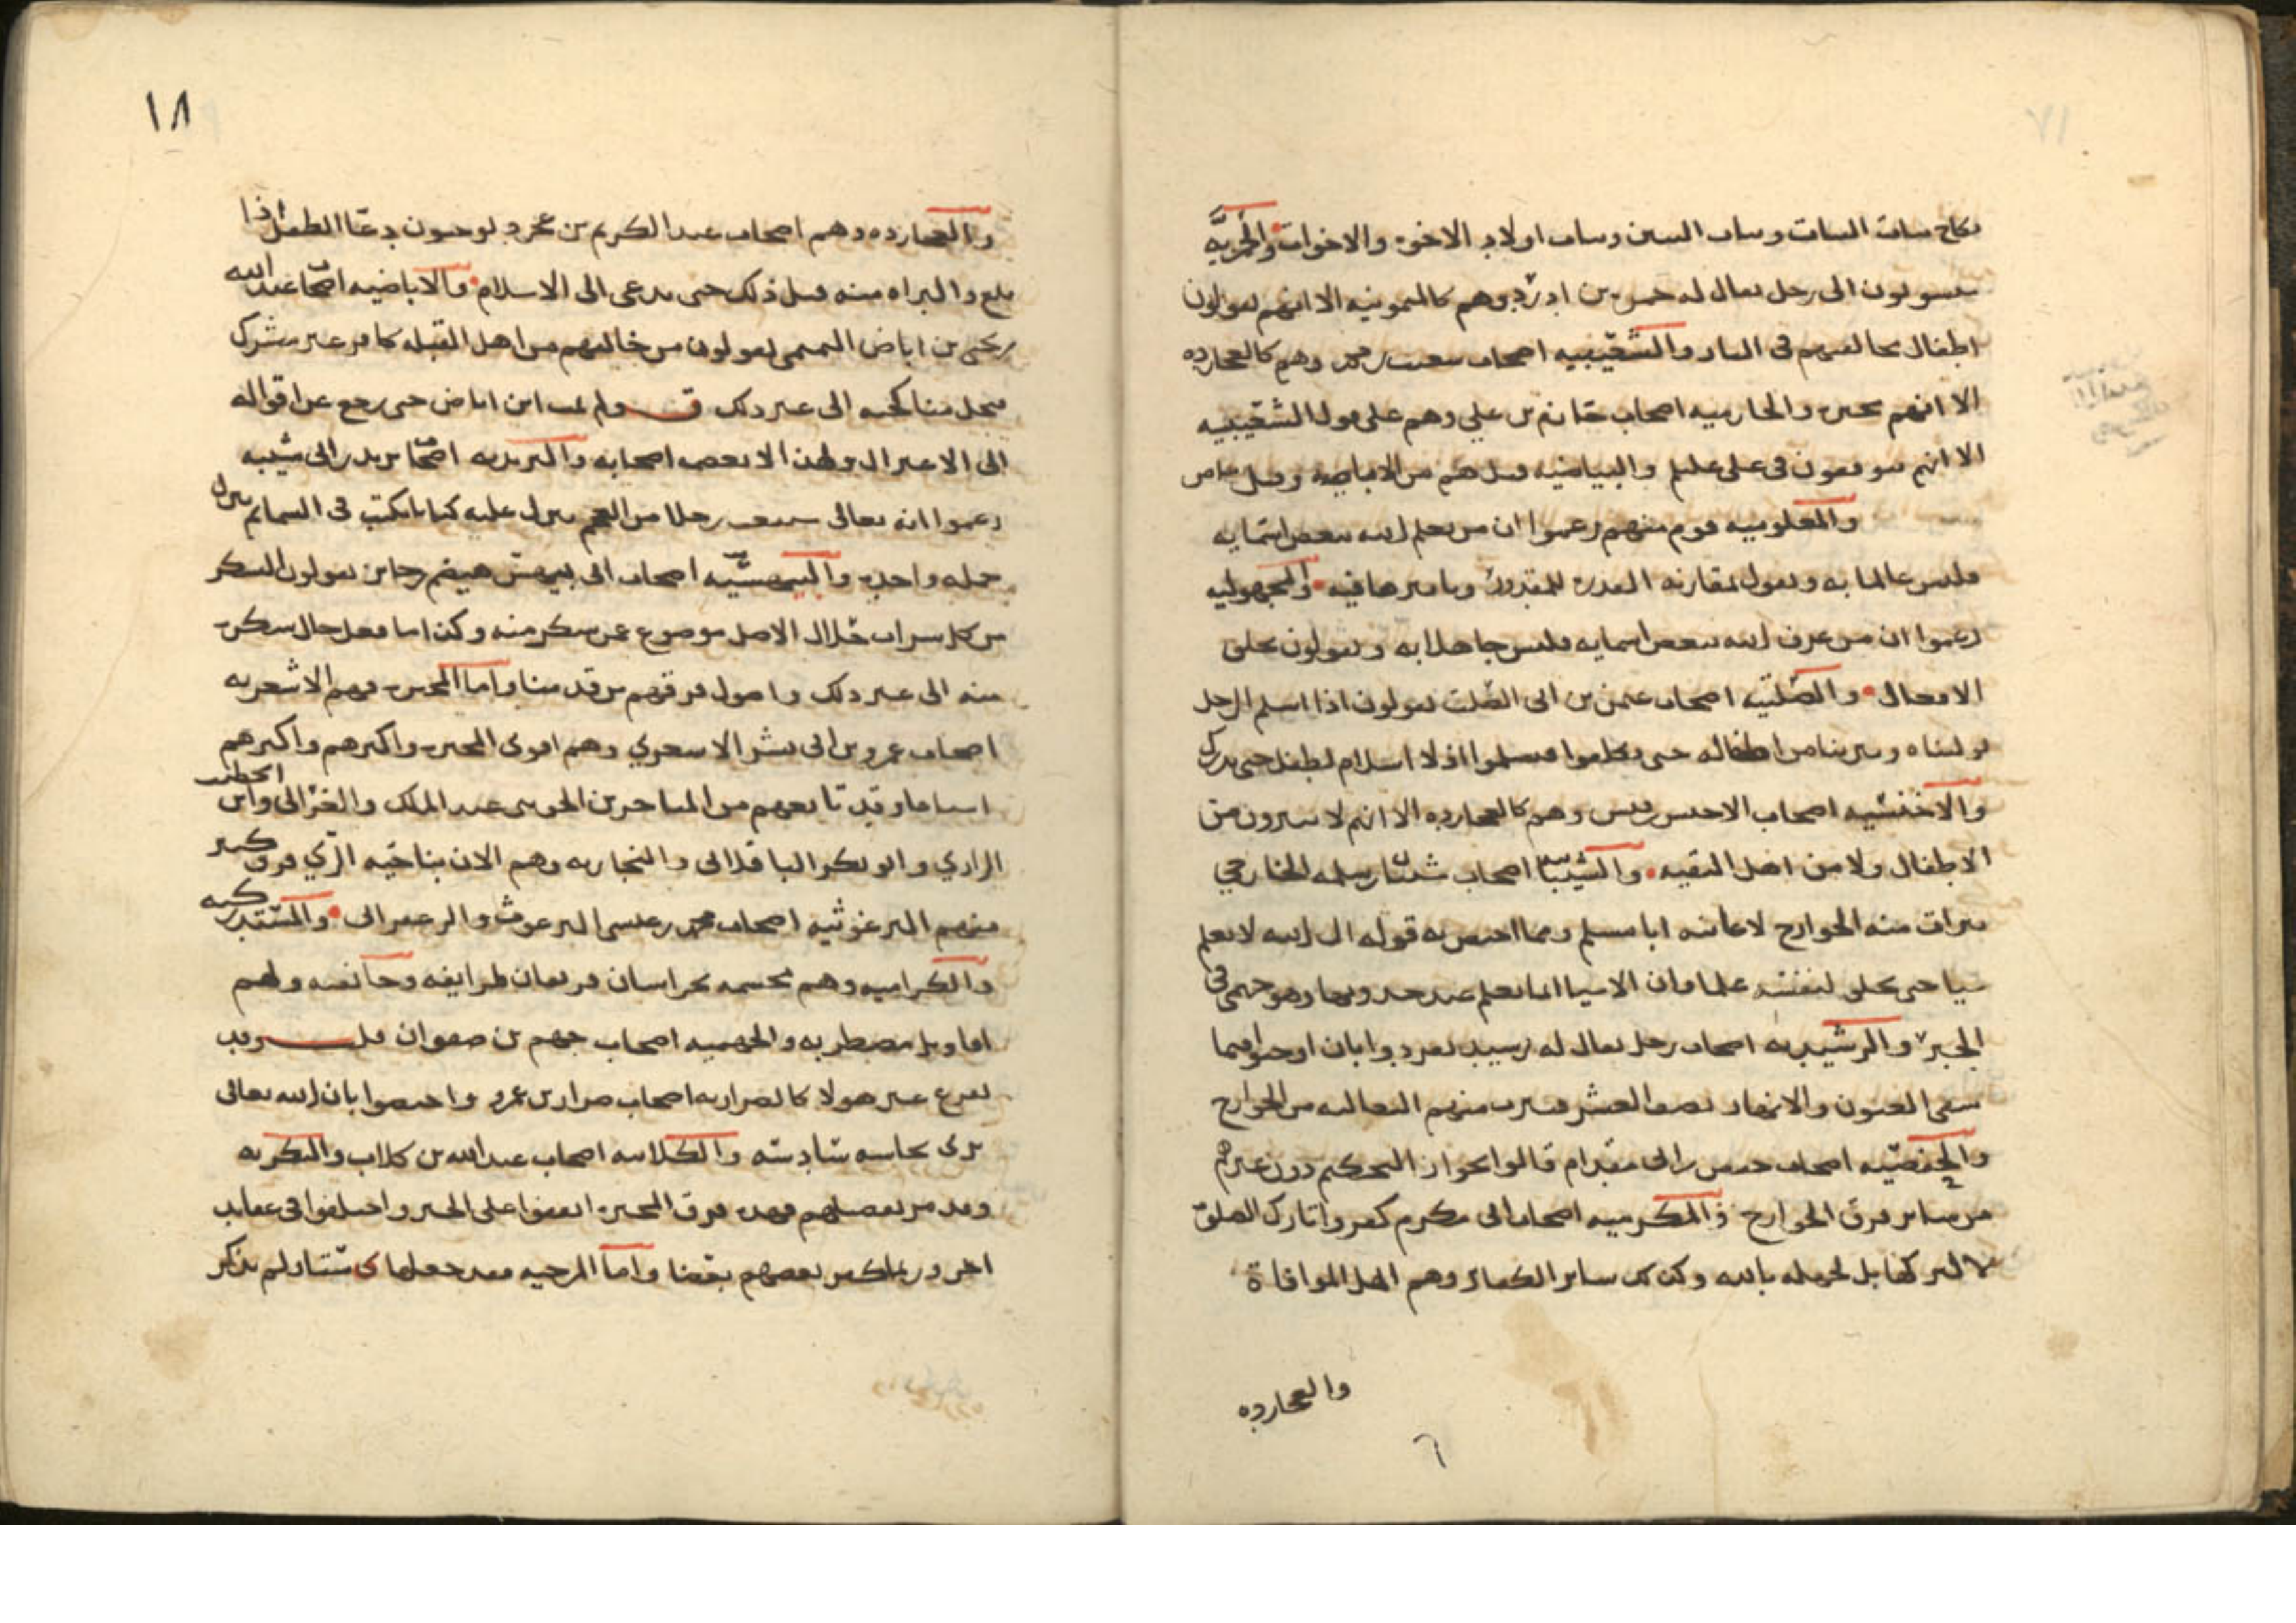 نكاح بنات البنات وبنات البنين وبنات اولاد الاخوه والاخوات والحمزيه
منسوبون الى رجل يقال له حمزه بن ادرك وهم كالميمونيه الا انهم يقولون
اطفال مخالفيهم فى النار والشعيبيه اصحاب شعيب بن محمد وهم كالعجارده
الا انهم مجبره والحازميه اصحاب حازم بن علي وهم على قول الشعيبيه
الا انهم يتوقفون فى على عليلم والبياضيه قيل هم من الاباضيه وقيل
والمعلوميه قوم منهم زعموا ان من يعلم الله ببعض اسمايه
فليس عالما به ونقول بمقارنه القدره للمقدور والمجهوليه
زعموا ان من عرف الله ببعض اسمايه فليس جاهلا به ويقولون بخلق
الافعال والصلتيه اصحاب عثمن بن ابى الصلت يقولون اذا اسلم الرجل
توليناه وتبرينا من اطفاله حتى يدركوا فيسلموا اذ لا اسلام لطفل حتى يدرك
والاخنسيه اصحاب الاخنس بن قيس وهم كالعجارده الا انهم لا يتبرون من
الاطفال ولا من اهل التقيه والشيبانيه اصحاب شيبان بن سلمه الخارجي
تبرات منه الخوارج لاعانته ابا مسلم ومما اختص به قوله ان الله لا يعلم
شيا حتى يخلق لنفسه علما وان الاشيا انما تعلم عند حدوثها وهو جهمي فى
الجبر والرشيديه اصحاب رجل يقال له رشيد تفردوا بان اوجبوا فيما
سقى العيون والانهار نصف العشر فتبرت منهم الثعالبه من الخوارج
والحفصيه اصحاب حفص بن ابى مقدام قالوا بجواز التحكيم دون غيرهم
من ساير فرق الخوارج والمكرميه اصحاب ابى مكرم كفروا تارك الصلوه
لا لتركها بل لجهله بالله وكذلك ساير الكبائر وهم اهل الموافاة
والعجارده
٦
١٨
والعجارده وهم اصحاب عبد الكريم بن عجرد يوجبون دعا الطفل اذا
بلغ والبراه منه قبل ذلك حتى يدعى الى الاسلام والاباضيه اصحاب عبد الله
بن يحيى بن اباض التميمى يقولون من خالفهم من اهل القبله كافر غير مشرك
تحل مناكحته الى غير ذلك ولم يمت ابن اباض حتى رجع عن اقواله
الى الاعتزال ولهذا لا يعظمه اصحابه واليزيديه اصحاب يزيد بن ابى شيبه
زعموا انه تعالى سيبعث رجلا من العجم ينزل عليه كتابا كتب فى السما ثم ينزل
جمله واحده والبيهسيه اصحاب ابى بيهس هيصم بن جابر يقولون السكر
من كل شراب حلال الاصل موضوع عمن سكر منه وكذا ما فعل حال سكره
منه الى غير ذلك واصول فرقهم من قدمنا واما المجبره فهم الاشعريه
اصحاب عمرو بن ابى بشر الاشعري وهم اقوى المجبره واكثرهم واكبرهم
اتباعا وقد تابعهم من المتاخرين الجوينى عبد الملك والغزالى وابن الخطيب
الرازي وابو بكر الباقلانى والنجاريه وهم الان بناحيه الري فرق كثير
منهم البرغوثيه اصحاب محمد بن عيسى البرعوث والزعفرانى والمستدركيه
والكراميه وهم مجسمه بخراسان فرقتان طرايفه وحائفيه ولهم
اقاويل مضطربه والجهميه اصحاب جهم بن صفوان قلت وقد
تفرع غير هولا كالضراريه اصحاب ضرار بن عمرو واختصوا بان الله تعالى
يرى بحاسه سادسه والكلابيه اصحاب عبد الله بن كلاب والبكريه
وقد مر تفصيلهم فهذه فرق المجبره اتفقوا على الجبر واختلفوا فى عقايد
اخر وربما كفر بعضهم بعضا واما المرجيه فقد جعلها ى ولم يذكر